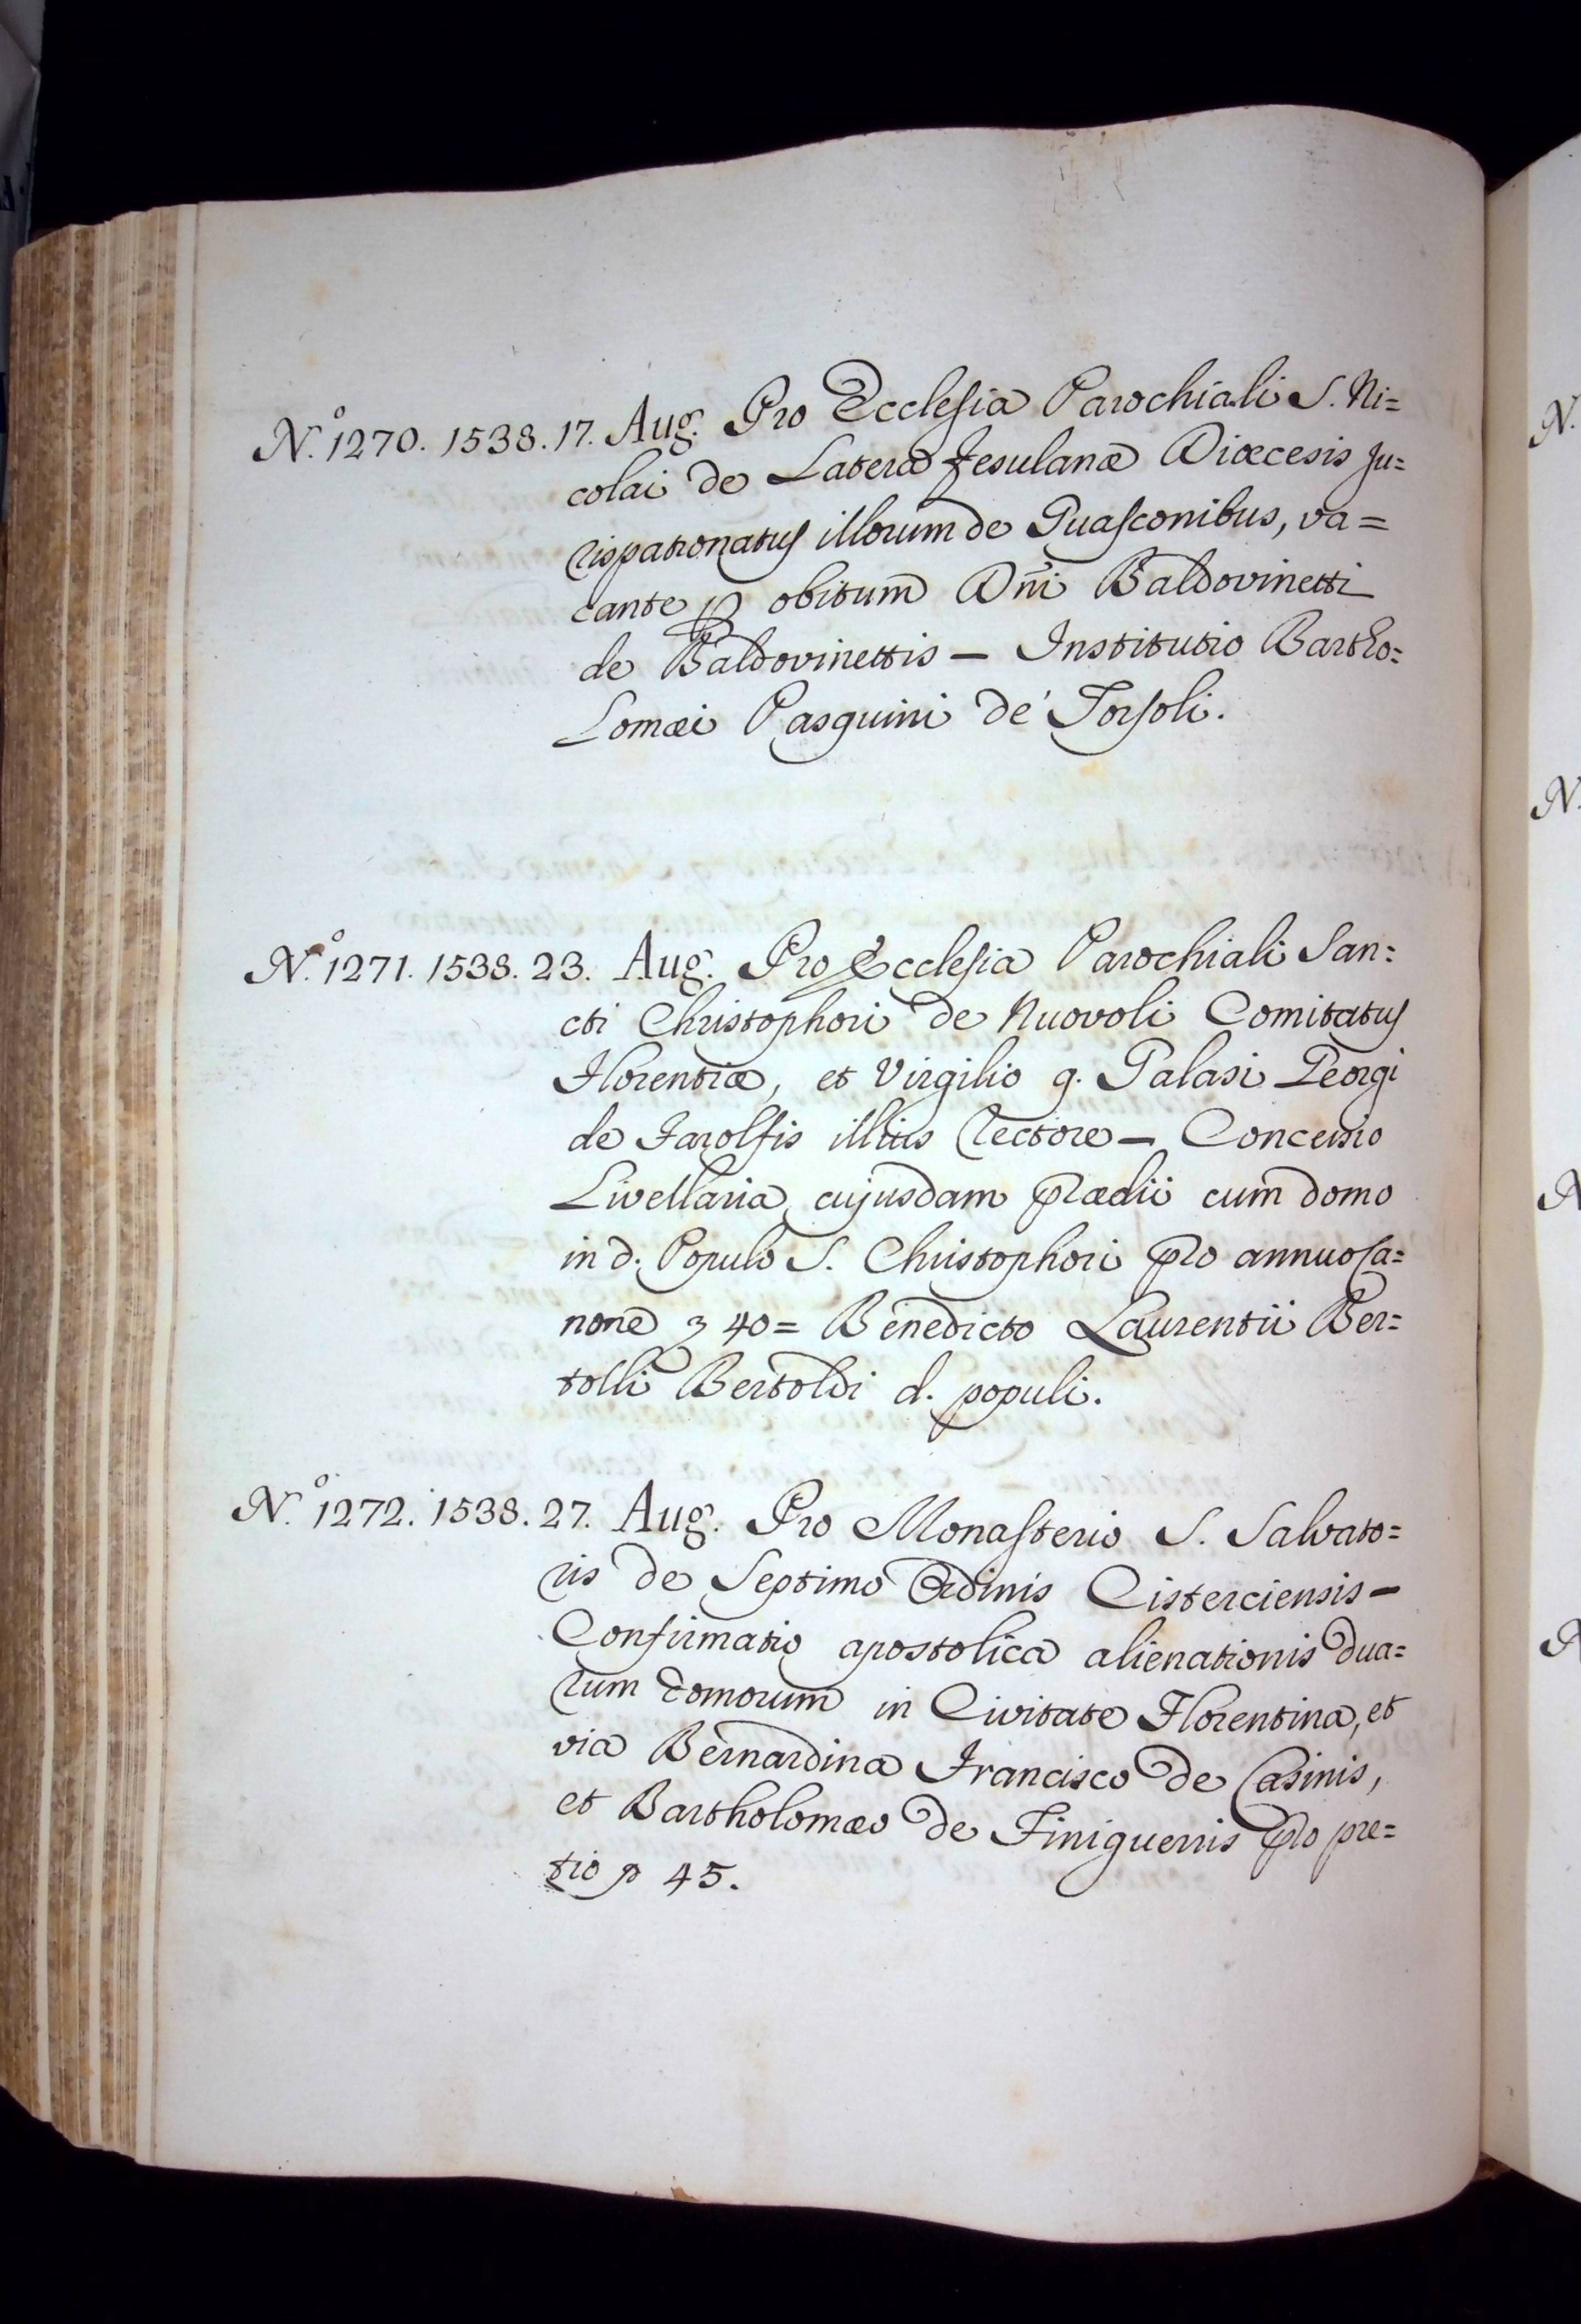 N.º 1270. 1538. 17. Aug. Pro Ecclesia Parochiali S. Ni=
colai de Latera Fesulanæ Diœcesis Ju=
rispatronatus illorum de Guasconibus, va=
cante p obitum Dñi Baldovinetti
de Baldovinettis — Institutio Bartho=
lomæi Pasquini de' Torsoli.
N.º 1271. 1538. 23. Aug. Pro Ecclesia Parochiali San=
cti Christophori de Nuovoli Comitatus
Florentiæ, et Virgilio q. Galasi Georgi
de Farolfis illius Rectore — Concessio
Livellaria cujusdam prædii cum domo
in d. Populo S. Christophori pro annuo Ca=
none 40 = Benedicto Laurentii Ber=
tolli Bertoldi d. populi.
N.º 1272. 1538. 27. Aug. Pro Monasterio S. Salvato=
ris de Septimo Ordinis Cisterciensis —
Confirmatio apostolica alienationis dua=
rum domorum in Civitate Florentina, et
via Bernardina Francisco de Casinis,
et Bartholomæo de Finiguerris pro pre=
tio 45.
N.
N.
N
N